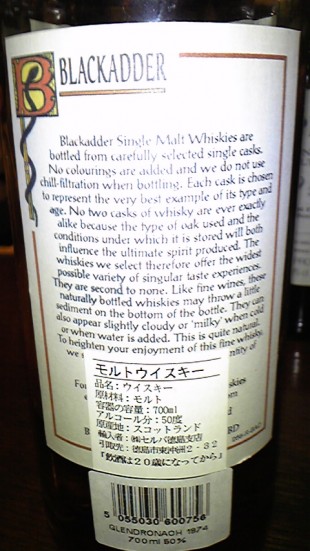 BLACKADDER
Blackadder Single Malt Whiskies are
bottled from carefully selected single casks.
No colourings are added and we do not use
chill-filtration when bottling. Each cask is chosen
to represent the very best example of its type and
age. No two casks of whisky are ever exactly
alike because the type of oak used and the
conditions under which it is stored will both
influence the ultimate spirit produced. The
whiskies we select therefore offer the widest
possible variety of singular taste experiences.
They are second to none. Like fine wines, those
naturally bottled whiskies may throw a little
sediment on the bottom of the bottle. They can
also appear slightly cloudy or 'milky' when cold
or when water is added. This is quite natural.
To heighten your enjoyment of this fine whisky,
モルトウイスキー
品名:ウイスキー
原材料:モルト
容器の容量:700ml
アルコール分:50度
原産地:スコットランド
輸入者:㈱セルバ徳島支店
引取先:徳島市東沖洲2-32
『飲酒は20歳になってから』
5 055030 600756
GLENDRONACH 1974
700ml 50%